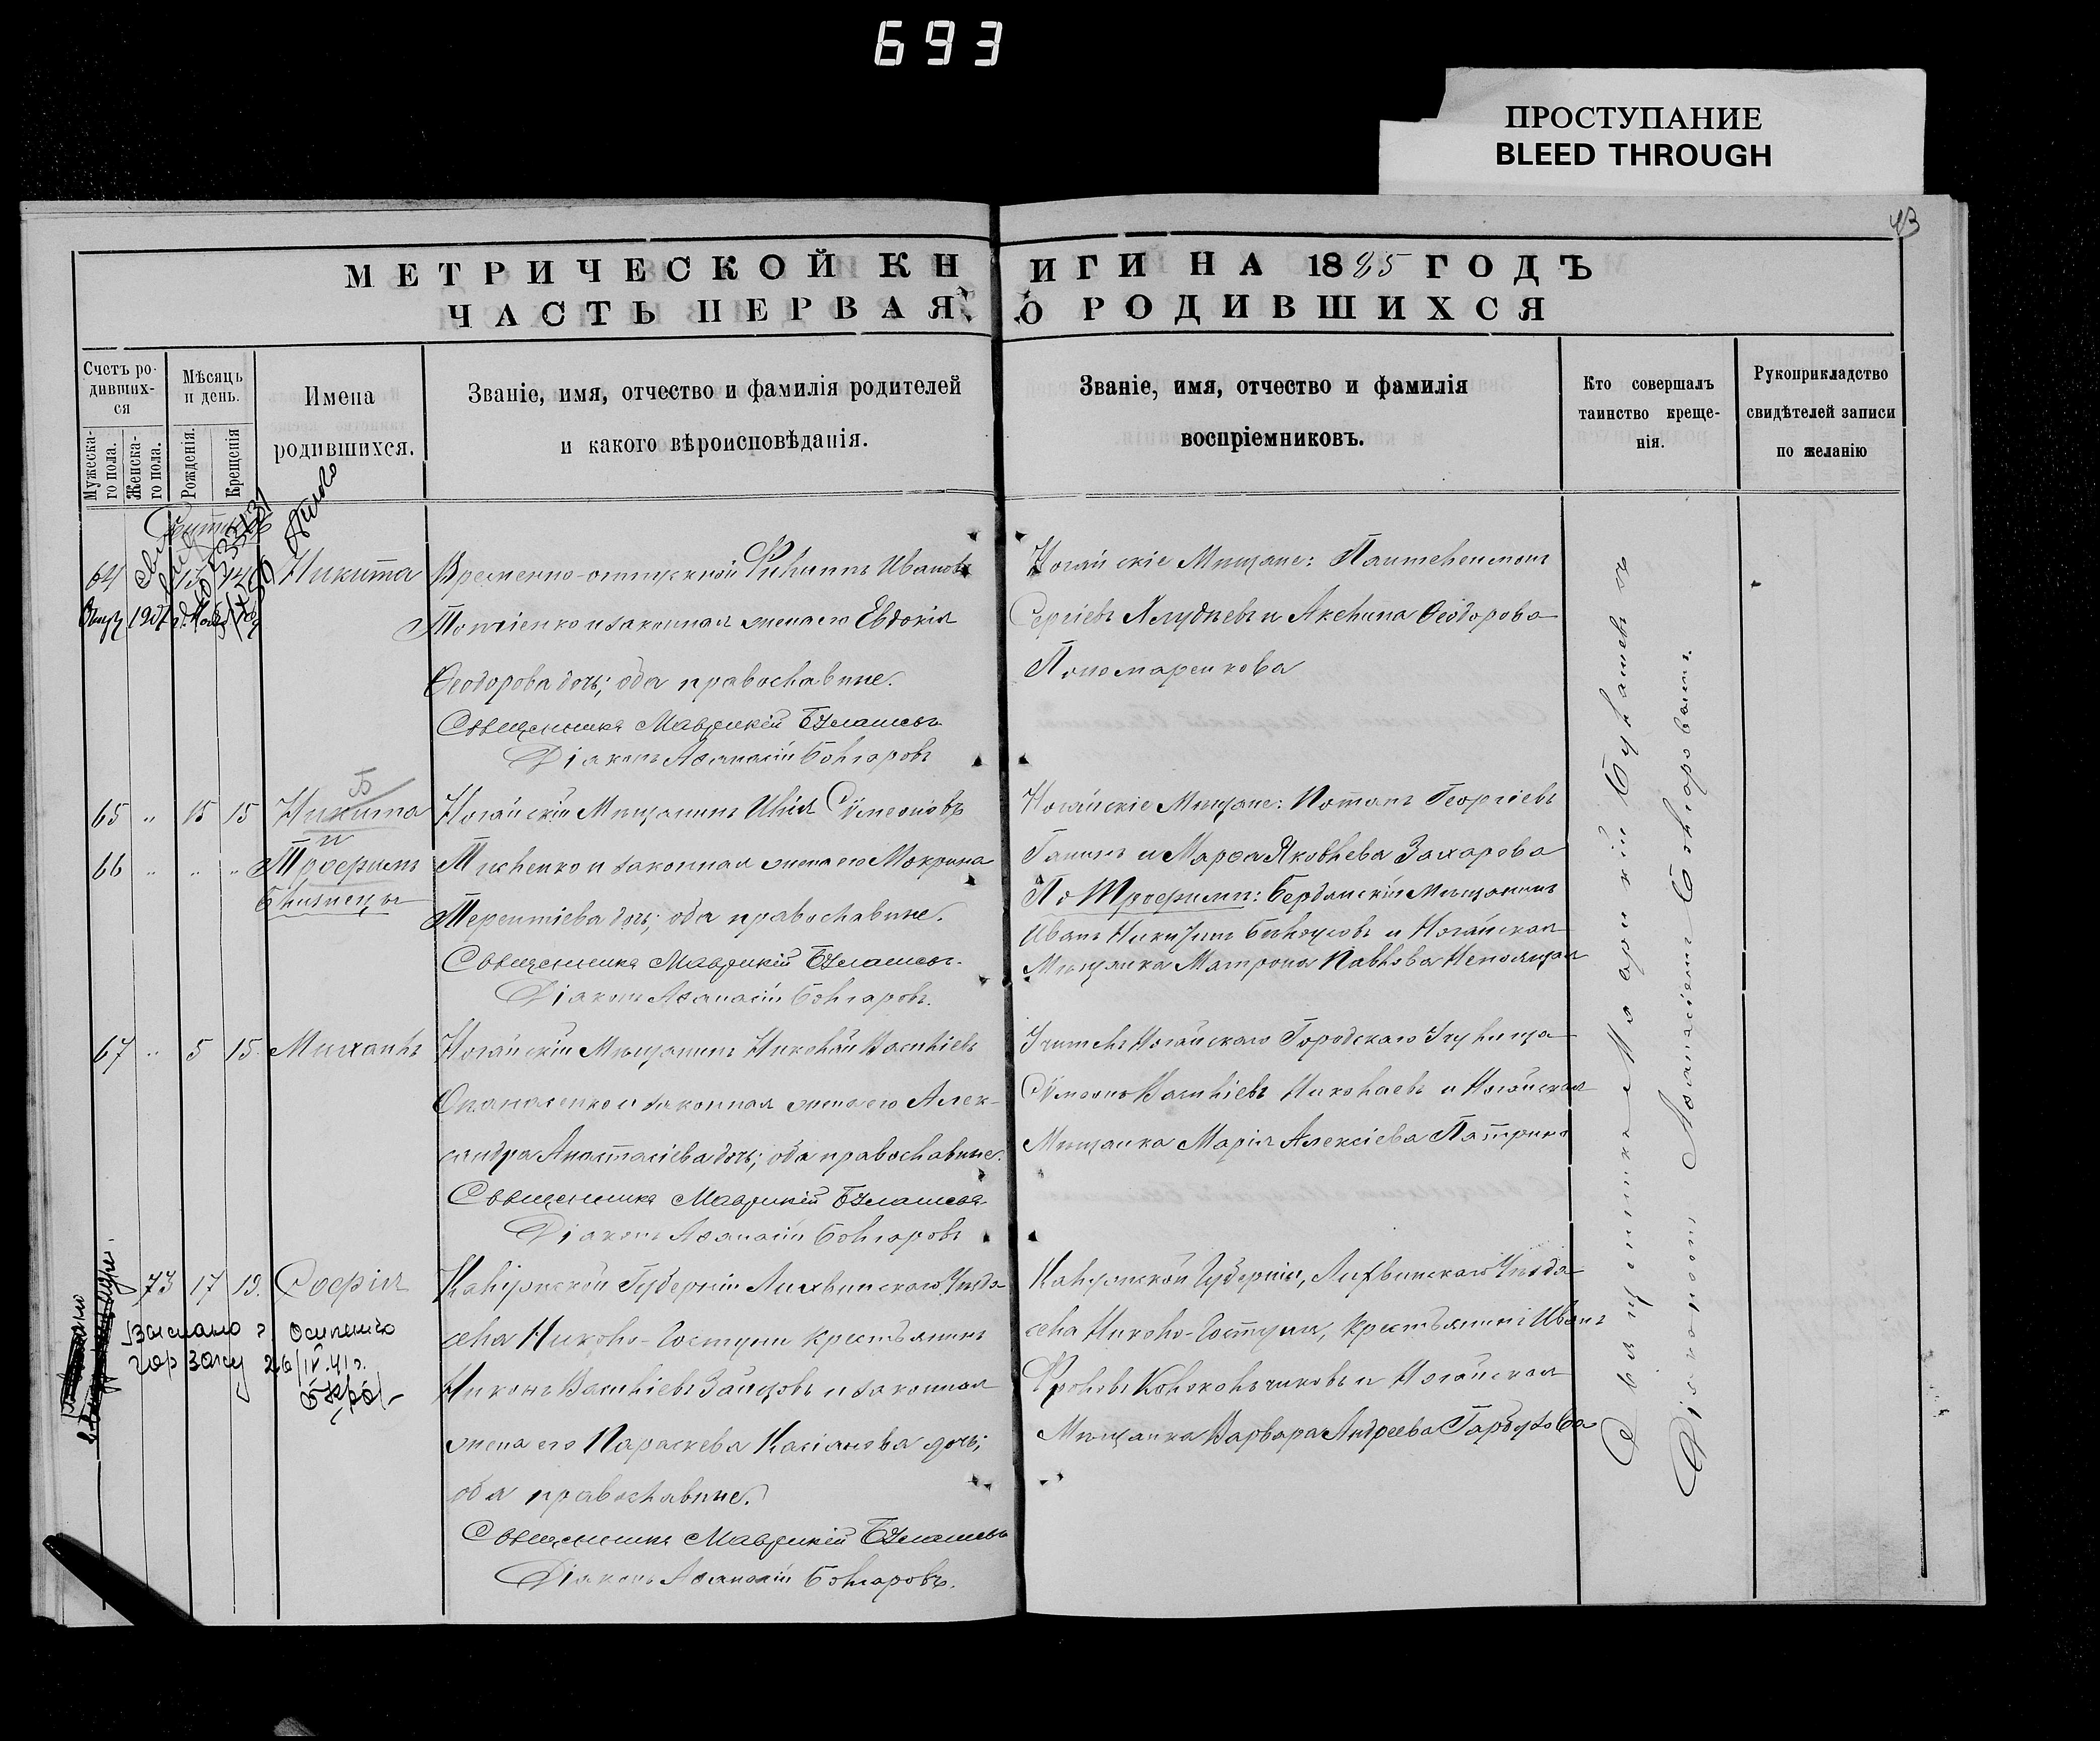 693
ПРОСТУПАНИЕ
BLEED THROUGH
43
МЕТРИЧЕСКОЙ КНИГИ НА 1885 ГОДЪ
ЧАСТЬ ПЕРВАЯ О РОДИВШИХСЯ
Счетъ родившихся
Мужескаго пола.
Женскаго пола.
Мѣсяцъ и день.
Рожденія.
Крещенія
Имена родившихся.
Званіе, имя, отчество и фамилія родителей
и какого вѣроисповѣданія.
Званіе, имя, отчество и фамилія
воспріемниковъ.
Кто совершалъ
таинство крещенія.
Рукоприкладство
свидѣтелей записи
по желанію
64
Никита
Временно-отпускной Филиппъ Ивановъ
и законная жена его Евдокія
Ѳеодорова дочь; оба православные.
Священникъ Маврикій
Діаконъ Аѳанасій Болгаровъ
Ногайскіе Мѣщане: Пантелеимонъ
Сергіевъ и Акелина Ѳеодорова
Пономаренкова
65 " 15 15 Никита
и
66 " " " Трофимъ
близнецы
Ногайскій Мѣщанинъ Илія Сѵмеоновъ
Тищенко и законная жена его Мокрина
Терентіева дочь; оба православные.
Священникъ Маврикій
Діаконъ Аѳанасій Болгаровъ.
Ногайскіе Мѣщане: Потапъ Георгіевъ
Ганинъ и Марѳа Яковлева Захарова
По Трофимѣ: Бердянскій Мѣщанинъ
Иванъ и Ногайская
Мѣщанка Матрона Павлова
67 " 5 15. Михаилъ
Ногайскій Мѣщанинъ Николай Василіевъ
Опанасенко и законная жена его Александра Анастасіева дочь; оба православные.
Священникъ Маврикій
Діаконъ Аѳанасій Болгаровъ
Учитель Ногайскаго Городскаго Училища
Сѵмеонъ Василіевъ Николаевъ и Ногайская
Мѣщанка Марія Алексіева
73 17 19. Софія
Выслано
26/IV.41 г.
Калужской Губерніи Лихвинскаго Уѣзда
села Николо-Гостуни крестьянинъ
Никонъ Василіевъ Зайцовъ и законная
жена его Параскева Касіанова дочь;
оба православные.
Священникъ Маврикій
Діаконъ Аѳанасій Болгаровъ.
Калужской Губерніи, Лихвинскаго Уѣзда
села Николо-Гостуни, крестьянинъ Иванъ
Фроловъ Колокольчиковъ и Ногайская
Мѣщанка Варвара Андреева
Священникъ Маврикій
Діакономъ Аѳанасіемъ Болгаровымъ.